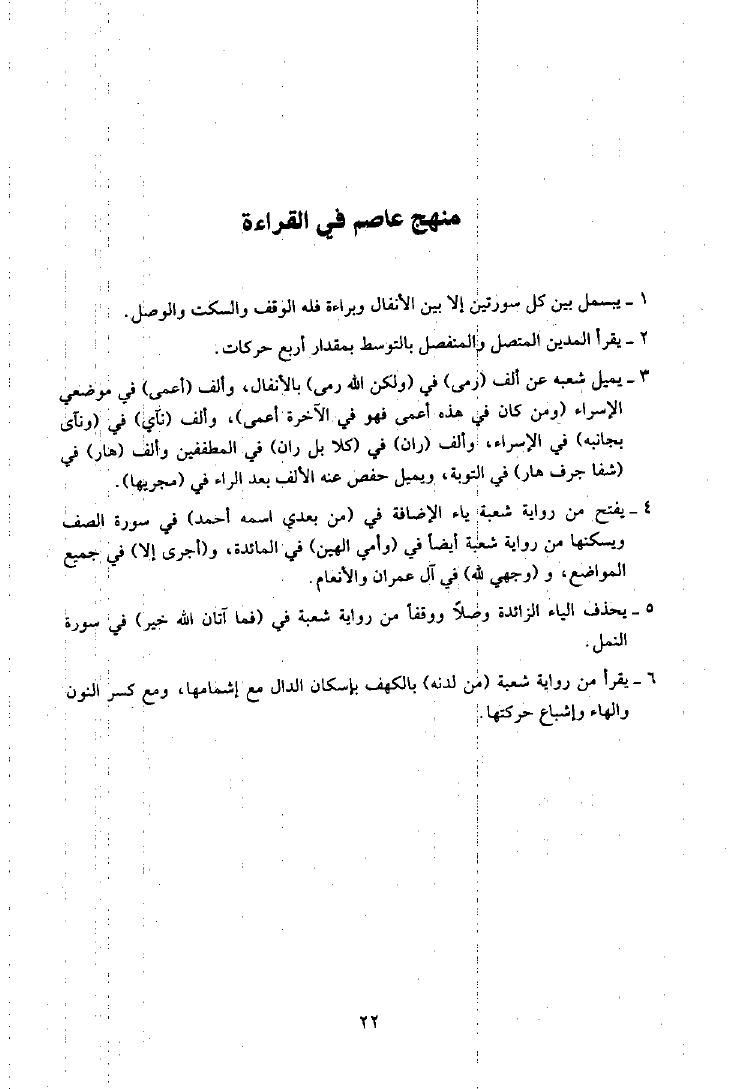 منهج عاصم في القراءة
١ ـ يبسمل بين كل سورتين إلا بين الأنفال وبراءة فله الوقف والسكت والوصل.
٢ ـ يقرأ المدين المتصل والمنفصل بالتوسط بمقدار أربع حركات.
٣ ـ يميل شعبه عن ألف (رمى) في (ولكن الله رمى) بالأنفال، وألف (أعمى) في موضعي
الإسراء (ومن كان في هذه أعمى فهو في الآخرة أعمى)، وألف (نآي) في (ونآى
بجانبه) في الإسراء، وألف (ران) في (كلا بل ران) في المطففين وألف (هار) في
(شفا جرف هار) في التوبة، ويميل حفص عنه الألف بعد الراء في (مجريها).
٤ ـ يفتح من رواية شعبة ياء الإضافة في (من بعدي اسمه أحمد) في سورة الصف
ويسكنها من رواية شعبة أيضاً في (وأمي الهين) في المائدة، و(أجرى إلا) في جميع
المواضع، و (وجهي لله) في آل عمران والأنعام.
٥ ـ يحذف الياء الزائدة وصلاً ووقفاً من رواية شعبة في (فما آتان الله خير) في سورة
النمل.
٦ ـ يقرأ من رواية شعبة (من لدنه) بالكهف بإسكان الدال مع إشمامها، ومع كسر النون
والهاء وإشباع حركتها.
٢٢